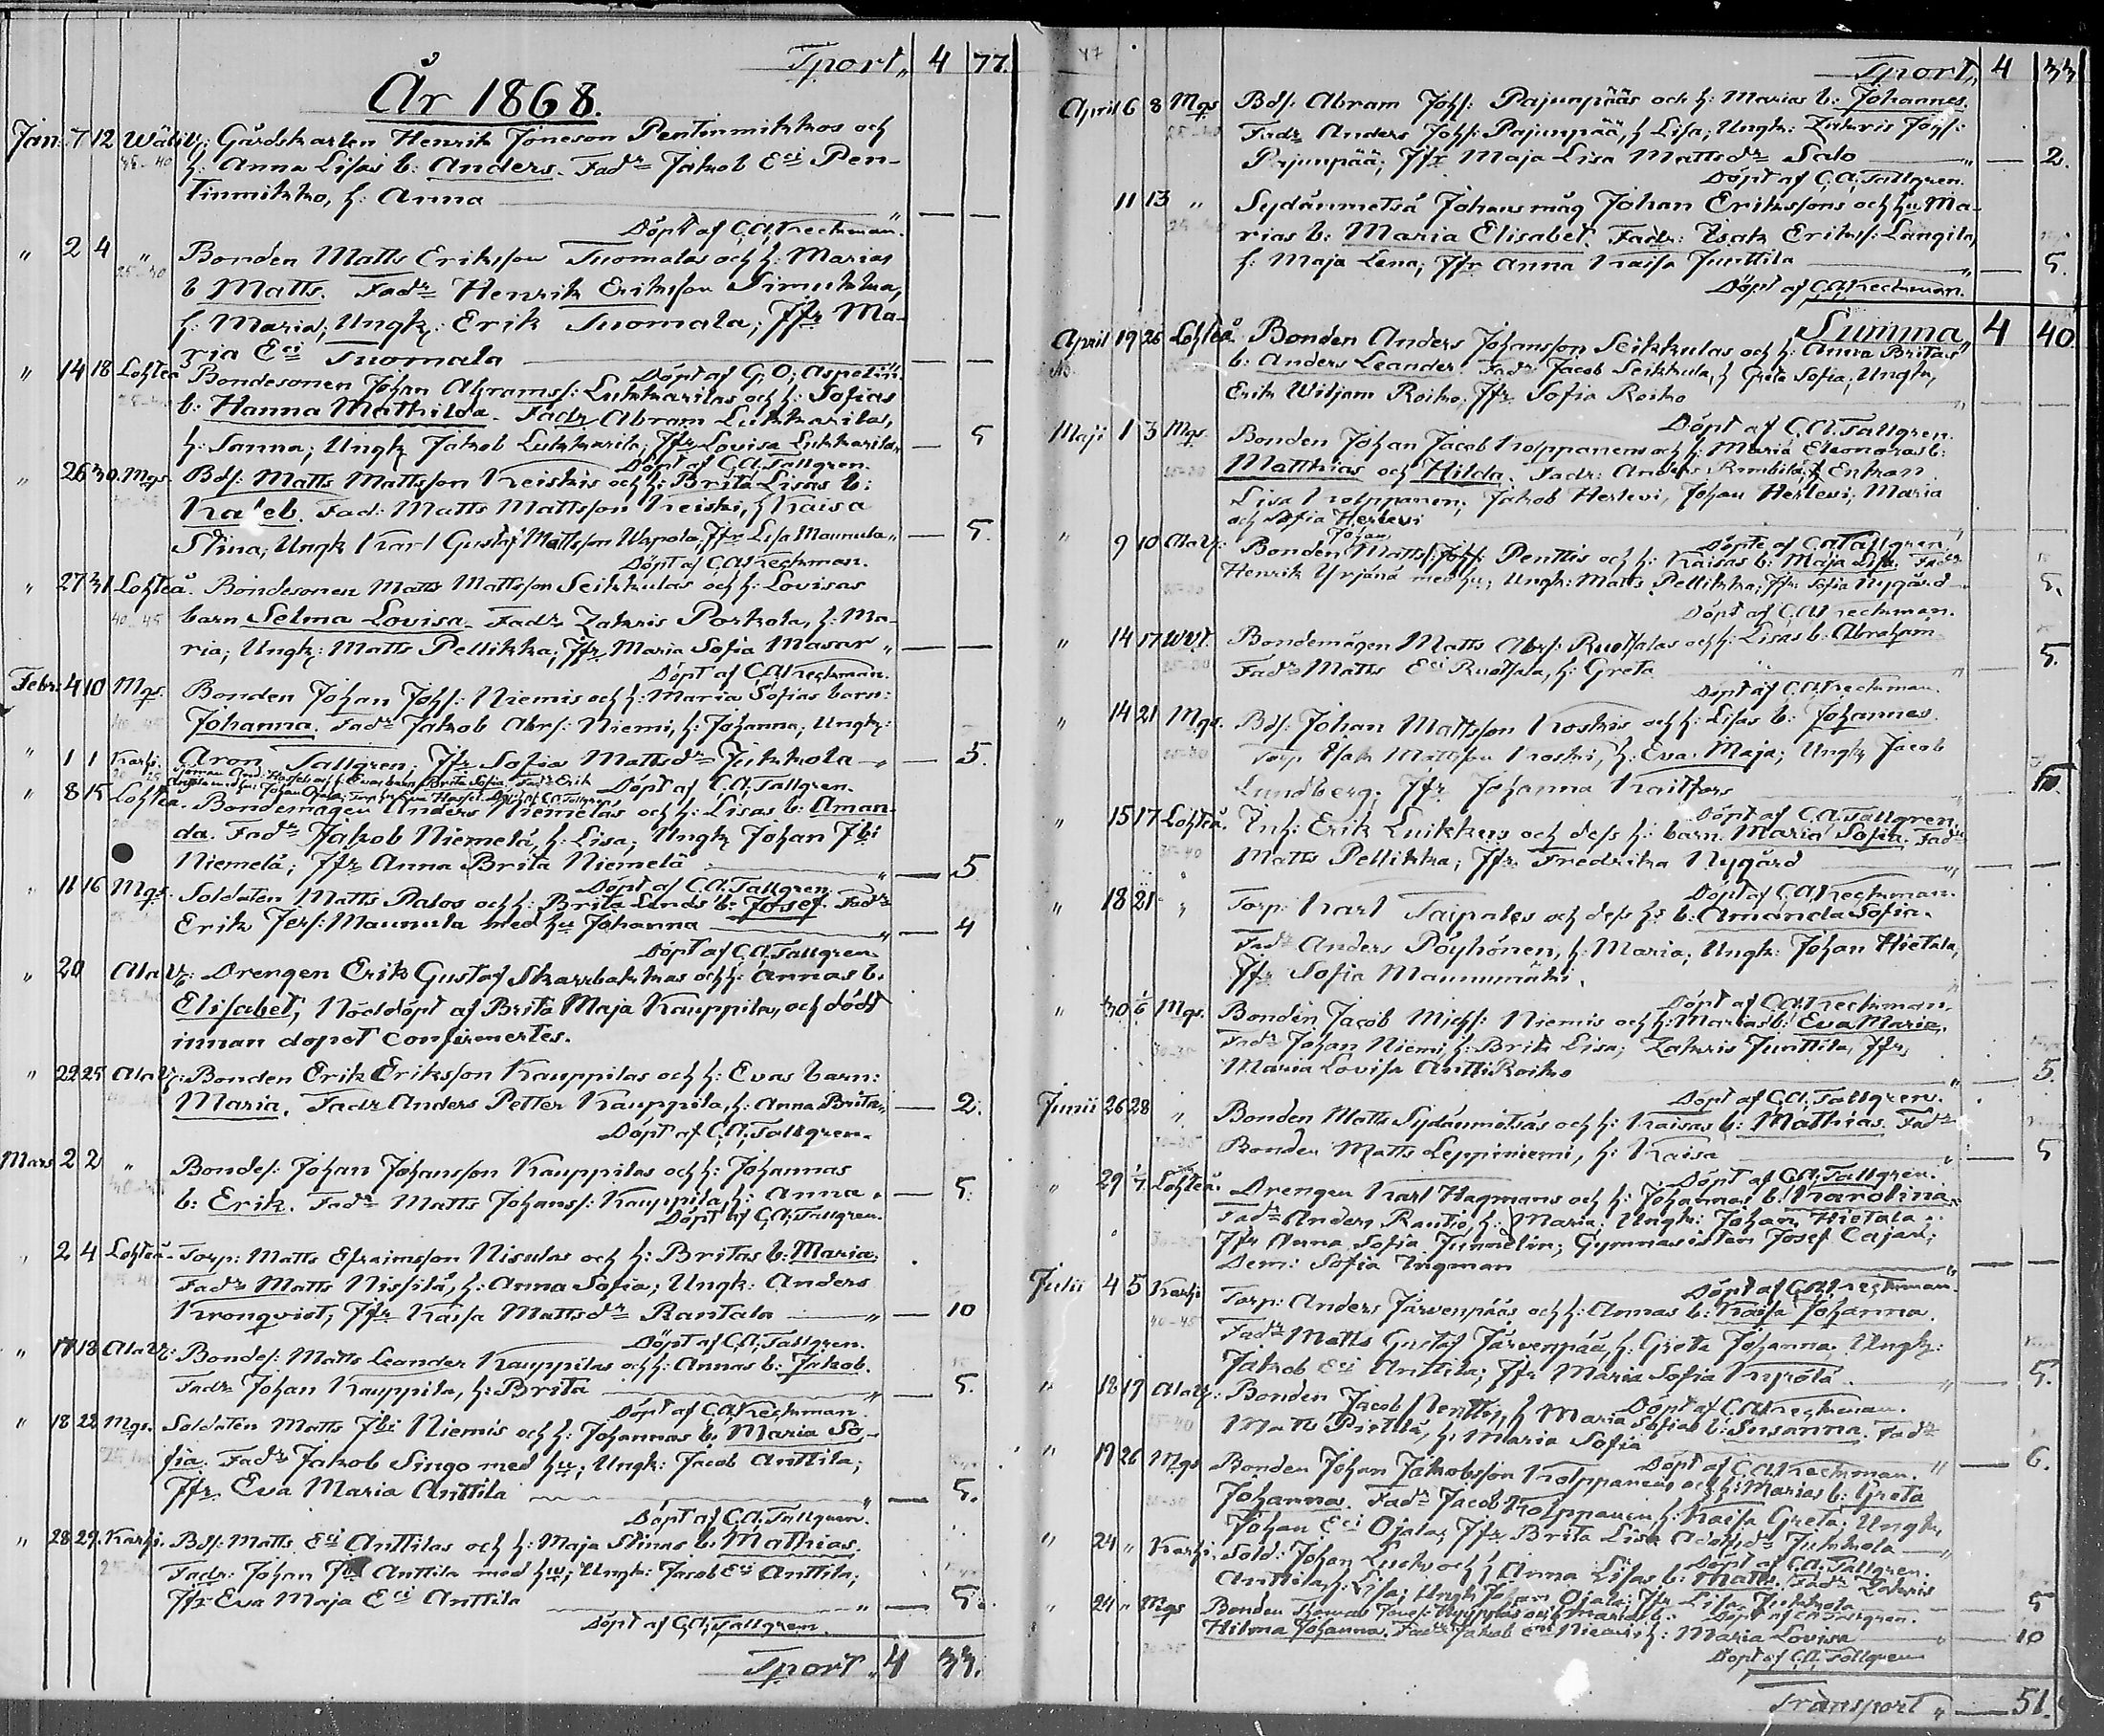 Tport „ 4 77.
År 1868.
Jan: 7 12 Wäli Gårdskarlen Henrik Joneson Pentinmikkos och
h: Anna Lisas b: Anders. Fadr Jakob Eci Pen-
tinmikko, h: Anna „ — —
Döpt af C.A. Keckman.
„ 2 4 „ Bonden Matts Eriksson Tuomalas och h: Marias
b Matts. Fadr Henrik Eriksson Simukka,
h: Maria; Ungk: Erik Tuomala; Jfr Ma-
ria Eci Tuomala — —
Döpt af G.O. Aspelin.
„ 14 18 Lohteå Bondesonen Johan Abramss: Lukkarilas och h: Sofias
b: Hanna Mathilda. Fadr Abram Lukkarilas,
h: Sanna; Ungk Jakob Lukkarila; Jfr Lovisa Lukkarila „ — 5
Döpt af C.A. Tallgren.
„ 26 30 Mgs. Bds: Matts Mattsson Keiskis och h: Brita Lisas b:
Kaleb. Fad: Matts Mattsson Keiski, h Kaisa
Stina; Ungk Karl Gustaf Mattsson Uspola; Jfr Lisa Maunula „ — 5.
Döpt af C.A. Keckman.
„ 27 31 Lohteå. Bondesonen Matts Mattsson Seikkulas och h: Lovisas
barn Selma Lovisa. Fadr Zakris Porkola, h: Ma-
ria; Ungk: Matts Pellikka; Jfr Maria Sofia Masar „ — —
Döpt af C.A. Keckman.
Febr: 4 10 Mgs. Bonden Johan Johs: Niemis och h: Maria Sofias barn:
Johanna. Fadr Jakob Abrs: Niemi, h: Johanna; Ungk:
Aron Tallgren; Jfr Sofia Mattsdr Jukkola „ — 5.
„ 1 1 Karhi.
Döpt af C.A. Tallgren.
„ 8 15 Lohteå. Bondemågen Anders Niemeläs och h: Lisas b: Aman-
da. Fadr Jakob Niemelä, h: Lisa; Ungk Johan Jbi
Niemelä; Jfr Anna Brita Niemelä „ — 5
Döpt af C.A. Tallgren
„ 11 16 Mgs. Soldaten Matts Palos och h: Brita Lenas b: Josef. Fadr
Erik Jers: Maunula med hu Johanna „ — 4
Döpt af C.A. Tallgren.
„ 20 Alav: Drengen Erik Gustaf Skarrbakkas och h: Annas b.
Elisabet; Nöddöpt af Brita Maja Kauppila, och dödt
innan dopet confirmertes.
„ 22 25 Alav: Bonden Erik Eriksson Kauppilas och h: Evas barn:
Maria. Fadr Anders Petter Kauppila, h: Anna Brita „ — 2.
Döpt af C.A. Tallgren.
Mars 2 2 „ Bondes: Johan Johansson Kauppilas och h: Johannas
b: Erik. Fadr Matts Johanss: Kauppila, h: Anna „ — 5.
Döpt af C.A. Tallgren.
„ 2 4 Lohteå. Torp: Matts Efraimsson Nisulas och h: Britas b: Maria.
Fadr Matts Nissilä, h: Anna Sofia; Ungk: Anders
Kronqvist; Jfr Kaisa Mattsdr Rantala „ — 10
Döpt af C.A. Tallgren.
„ 17 18 Alav: Bondes: Matts Leander Kauppilas och h: Annas b: Jakob.
Fadr Johan Kauppila, h: Brita „ — 5.
Döpt af C.A. Keckman.
„ 18 22 Mgs. Soldaten Matts Jbi Niemis och h: Johannas b. Maria So-
fia. Fadr Jakob Singo med hu; Ungk: Jacob Anttila;
Jfr Eva Maria Anttila „ — 5.
Döpt af C.A. Tallgren.
„ 28 29. Karhi. Bds: Matts Eci Anttilas och h: Maja Stinas b. Mathias.
Fadr: Johan Anttila med hu; Ungk: Jacob Eci Anttila;
Jfr Eva Maja Eci Anttila „ — 5.
Döpt af C.A. Tallgren.
Tport „ 4 33.
47
Tport, 4 33
April 6 8 Mgs Bds: Abram Johs: Pajunpääs och h: Marias b: Johannes.
Fadr Anders Johs: Pajunpää, h Lisa; Ungk: Zakris Johs:
Pajunpää; Jfr Maja Lisa Mattsdr Salo „ — 2.
Döpt af C.A. Tallgren.
11 13 „ Sydänmetsä Johans måg Johan Erikssons och hu Ma-
rias b: Maria Elisabet. Fadr: Isak Erikss: Langila,
h: Maja Lena; Jfr Anna Kaisa Junttila „ — 5.
Döpt af C.A. Keckman.
Summa 4 40.
April 19 26 Lohteå Bonden Anders Johansson Seikkulas och h: Anna Britas
b: Anders Leander. Fadr Jacob Seikkula, h Greta Sofia; Ungk,
Erik Wiljam Roiko; Jfr Sofia Roiko
Döpt af C.A. Tallgren.
Maji 1 3 Mgs. Bonden Johan Jacob Kolppanens och h: Maria Eleonoras b:
Matthias och Hilda. Fadr: Anders Rimbilä, Enkan
Lisa Kolppanen; Jakob Herlevi, Johan Herlevi; Maria
och Sofia Herlevi
Döpte af C.A. Tallgren
„ 9 10 Alav: Bonden Matts Johan Johs: Penttis och h: Kaisas b: Maja Lisa. Fadr
Henrik Yrjänä med hu; Ungk: Matts Pellikka; Jfr Sofia Nygård — 5.
Döpt af C.A. Keckman.
„ 14 17 Wvt. Bondemågen Matts Abrs: Ruotsalas och h: Lisas b: Abraham
Fadr Matts Eci Ruotsala, h: Greta 5.
Döpt af C.A. Keckman.
„ 14 21 Mgs. Bds: Johan Mattsson Koskis och h: Lisas b: Johannes.
Torp Isak Mattsson Koski, h: Eva Maja; Ungk Jacob
Lundberg; Jfr Johanna Kaitfors
Döpt af C.A. Tallgren.
„ 15 17 Lohteå. Inh: Erik Luikkus och dess h: barn: Maria Sofia. Fadr
Matts Pellikka; Jfr Fredrika Nygård „ — —
Döpt af C.A. Keckman.
„ 18 21 „ Torp: Karl Taipales och dess h: b: Amanda Sofia.
Fadr Anders Pöyhönen, h: Maria; Ungk: Johan Hietala,
Jfr Sofia Maunumäki.
Döpt af C.A. Keckman.
„ 30 Mgs. Bonden Jacob Michs: Niemis och h: Marias b: Eva Maria.
Fadr Johan Niemi, h: Brita Lisa; Zakris Junttila, Jfr,
Maria Lovisa Antti Roiko „ — 5.
Döpt af C.A. Tallgren.
Junii 26 28 „ Bonden Matts Sydänmetsäs och h: Kaisas b: Mathias. Fadr
Bonden Matts Leppiniemi, h: Kaisa „ — 5
Döpt af C.A. Tallgren.
„ 29 Lohteå. Drengen Karl Hagmans och h: Johannas b: Karolina.
Fadr Anders Rautio, h: Maria; Ungk: Johan Hietala;
Jfr Anna Sofia Junnelin; Gymnasisten Josef Cajan;
Dem: Sofia Ingman — —
Döpt af C.A. Keckman.
Julii 4 5 Karhi Torp: Anders Järvenpääs och h: Annas b: Kaisa Johanna.
Fadr Matts Gustaf Järvenpää, h: Greta Johanna; Ungk:
Jakob Eci Anttila; Jfr Maria Sofia Kypölä „ — 5.
Döpt af C.A. Keckman.
„ 18 19 Alav: Bonden Jacob Penttis, h Maria Sofias b: Susanna. Fadr
Matts Pietilä, h: Maria Sofia „ — 6.
Döpt af C.A. Keckman.
„ 19 26 Mgs Bonden Johan Jakobsson Kolppanens och h: Marias b: Greta
Johanna. Fadr Jacob Kolppanen, h: Kaisa Greta; Ungk,
Johan Eci Ojala; Jfr Brita Lisa Adolfsdr Jukkola „
Döpt af C.A. Tallgren.
„ 24 „ Karhi. Sold: Johan Lucks och h Anna Lisas b: Matts. Fadr Zakris
Anttila, h: Lisa; Ungk Johan Ojala; Jfr Lisa Jukkola — 5
Döpt af C.A. Tallgren.
„ 24 „ Mgs Bonden
Hilma Johanna. Fadr Jakob Niemi, h: Maria Lovisa „ — 10
Döpt af C.A. Tallgren
Transport „ — 51.